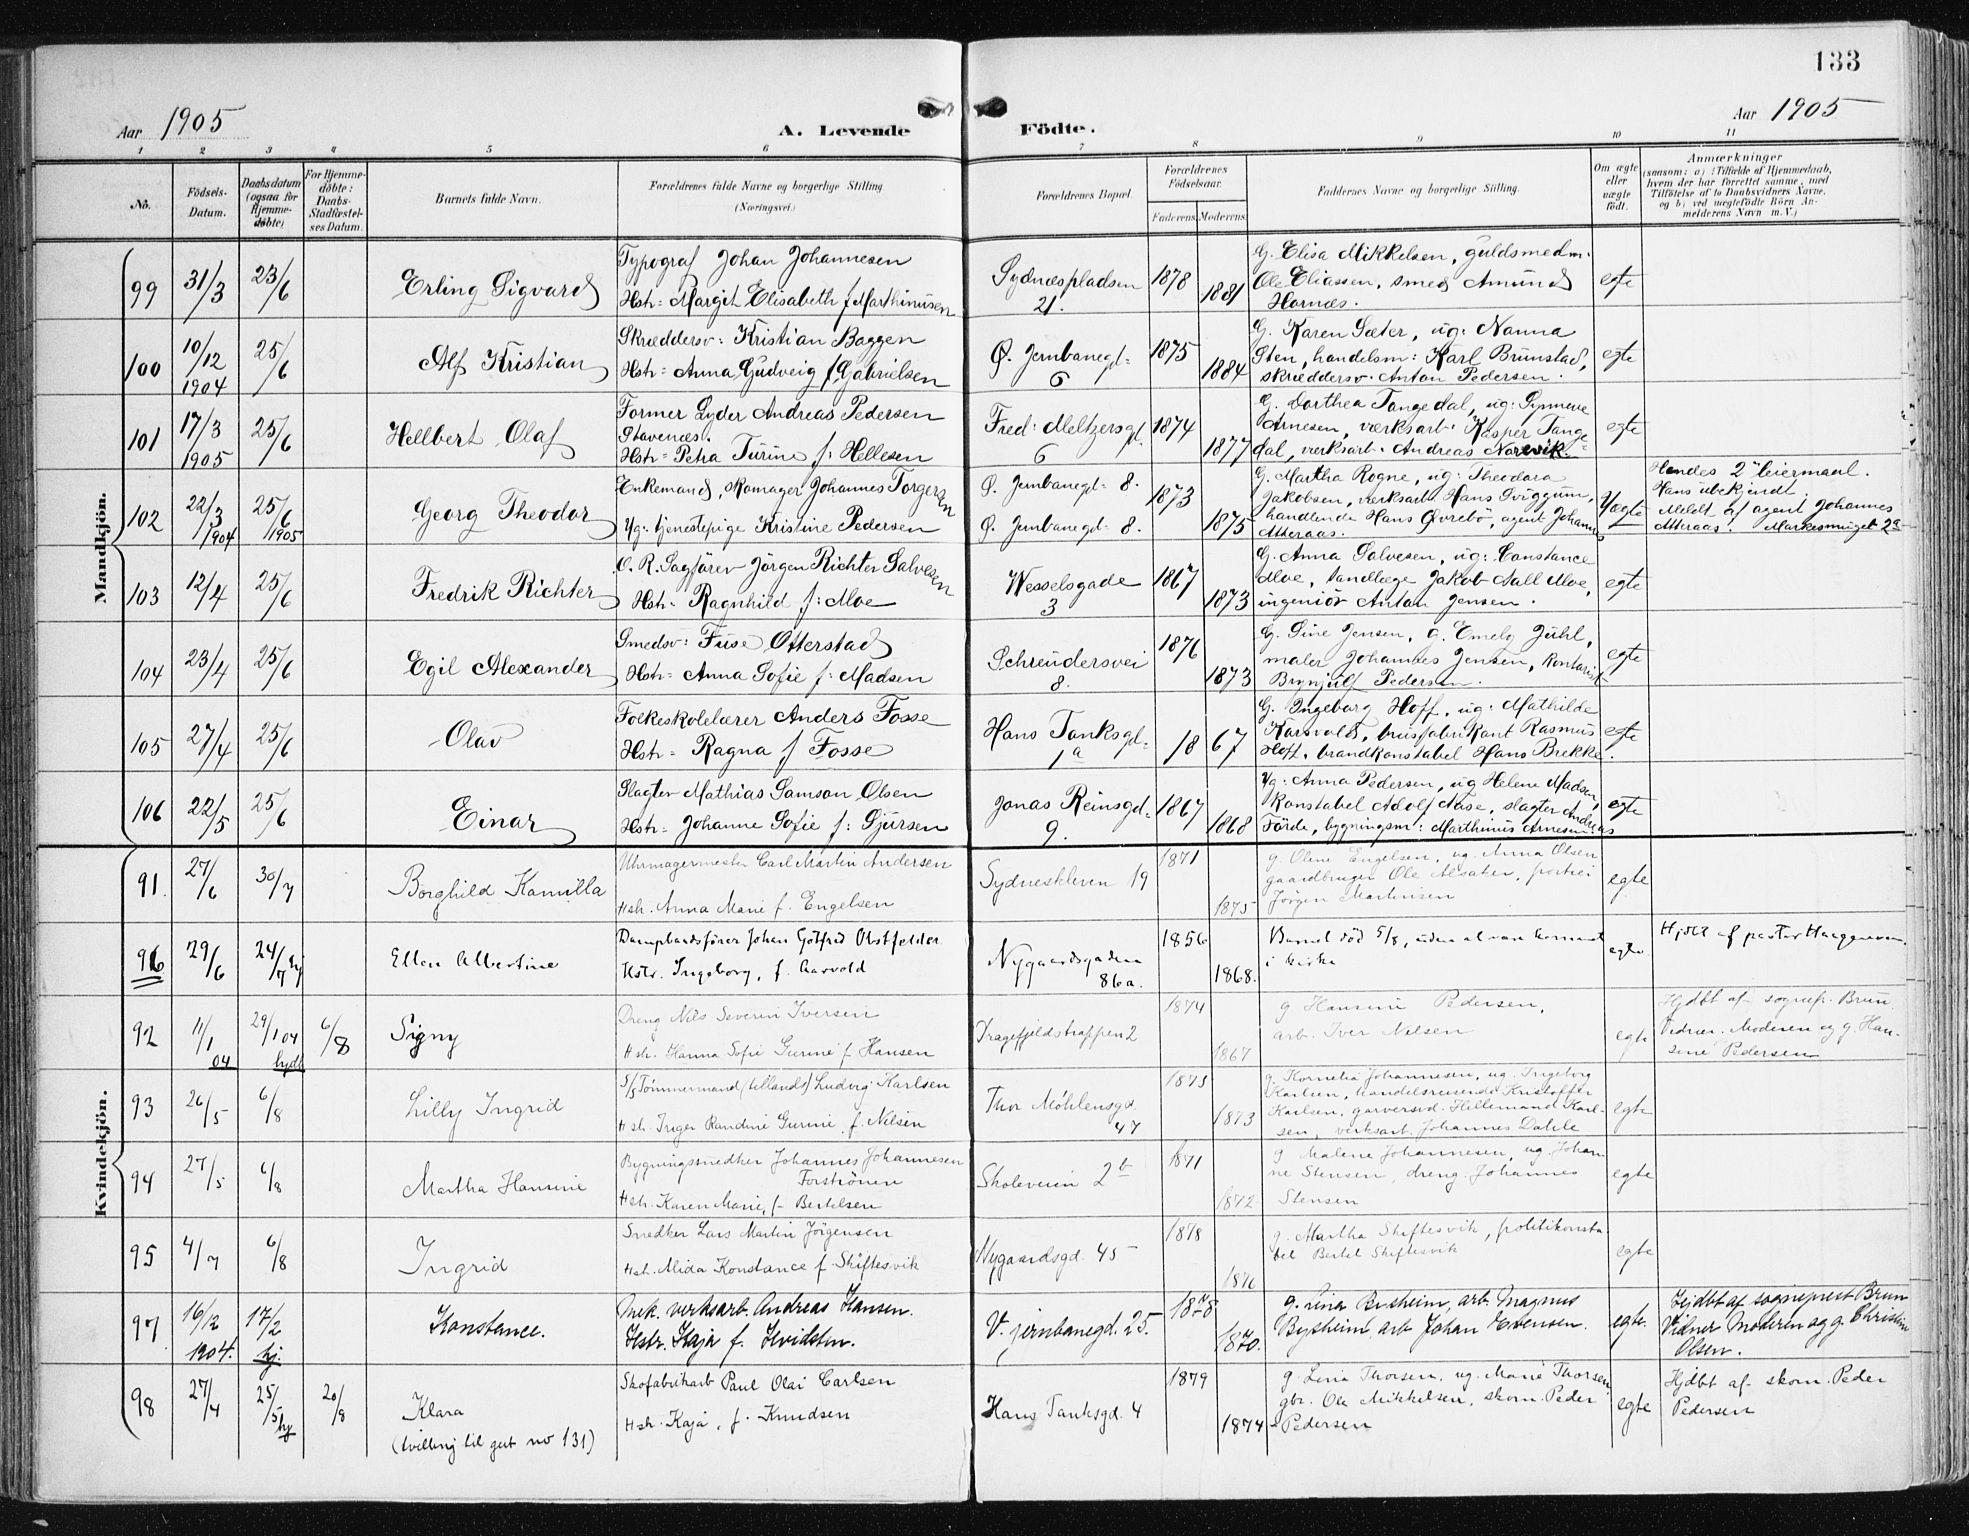 133
Aar 1905
A. Levende Födte.
Aar 1905
1 2 3 4 5 6 7 8 9 10 11
No.
Födsels-Datum.
Daabsdatum (ogsaa for Hjemme-döbte)
For Hjemme-döbte: Daabs-Stadfæstel-ses Datum.
Barnets fulde Navn.
Forældrenes fulde Navne og borgerlige Stilling
(Næringsvei.)
Forældrenes Bopæl.
Forældrenes Födselsaar.
Faderens. Moderens.
Faddernes Navne og borgerlige Stilling.
Om ægte eller uægte födt.
Anmærkninger
(saasom: a) i Tilfælde af Hjemmedaab,
hvem der har forrettet samme, med
Tilföielse af to Daabsvidners Navne,
og b) ved uægtefödte Börn An-
melderens Navn m. V.)
Mandkjön.
99 31/3 23/6 Erling Sigvard
Typograf Johan Johannesen
Hstr: Margit Elisabeth f. Marthinusen
Sydnæspladsen
21.
1878 1881
G. Elisa Mikkelsen, guldsmedm.
Ole Eliassen, smed Amund
Hornæs.
egte
100 10/12 1904 25/6 Alf Kristian
Skræddersv: Kristian Baggen
Hstr: Anna Gudveig f. Gabrielsen
Ø. Jernbanegd:
6
1875 1884
G. Karen Sæter, ug: Nanna
Sten, handelsm: Karl Brunstad,
skræddersv. Anton Pedersen.
egte
101 17/3 1905 25/6 Hellbert Olaf
Former Lyder Andreas Pedersen
Stavenæs.
Hstr: Petra Turine f: Hellesen
Fred: Meltzersgd.
6
1874 1877
G. Dorthea Tangedal, ug: Synneve
Arnesen, værksarb: Kasper Tange-
dal, værksarb. Andreas Norevik.
egte
102 22/3 1904 25/6 1905 Georg Theodor
Enkemand, Skomager Johannes Torgersen
Ug: tjenestepige Kristine Pedersen
Ø. Jernbanegd: 8.
Ø. Jernbanegd: 8.
1873 1875
G. Martha Rogne, ug: Theodora
Jakobsen, værksarb Hans Sviggum,
handlende Hans Øvrebö, agent Johannes
Atteraas.
Uægte
Hendes 2det leiermaal.
Hans ubekjendt.
Meldt af agent Johannes
Atteraas. Markesmuget 2a
103 12/4 25/6 Fredrik Richter
O. R. Sagförer Jörgen Richter Salvesen
Hstr: Ragnhild f: Moe
Wesselsgade
3
1867 1873
G. Anna Salvesen, ug: Constance
Moe, tandlæge Jakob Aall Moe,
ingeniör Anton Jensen.
egte
104 23/4 25/6 Egil Alexander
Smedsv: Fuse Otterstad
Hstr: Anna Sofie f: Madsen
Schreudersvei
8.
1876 1873
G. Sine Jensen, G. Emely Juhl,
maler Johannes Jensen, kontorist
Brynjulf Pedersen.
egte
105 27/4 25/6 Olav
Folkeskolelærer Anders Fosse
Hstr: Ragna f Fosse
Hans Tanksgd:
1a
1867
G. Ingeborg Hoff, ug: Mathilde
Karsvold, brusfabrikant Rasmus
Hoff, brandkonstabel Hans Brekke.
egte
106 22/5 25/6 Einar
Slagter Mathias Samson Olsen
Hstr: Johanne Sofie f: Gjursen
Jonas Reinsgd:
9.
1867 1868
Ug: Anna Pedersen, ug Helene Madsen,
Konstabel Adolf Aase, slagter Andreas
Förde, bygningsm: Marthinus Arnesen
egte
Kvindekjön.
91. 27/6 30/7 Borghild Kamilla
Uhrmagermester Carl Martin Andersen
Hstr. Anna Marie f. Engelsen
Sydneskleven 19
1871 1875
g. Oline Engelsen, ug. Anna Olsen
gaardbruger Ole Alsaker, portier
Jörgen Martinsen
egte
96 29/6 24/7 hj Ellen Albertine
Dampbaadsförer Johan Gotfred Obstfelder
Hstr. Ingeborg, f. Aarvold
Nygaardsgaden
86a.
1856 1868.
Barnet död 5/8, uden at være kommet
i kirke
egte
Hjdbt af pastor
92 11/1 04 29/1 04 hjdbt 6/8 Signy
Dreng Nils Severin Iversen
Hstr. Hanna Sofie Gurine f. Hansen
Dragefjeldstrappen 2
1874 1867
g Hansine Pedersen,
arb. Iver Nilsen
egte
Hjdbt af sognepr. Brun
Vidner. Moderen og g. Han-
sine Pedersen
93 26/5 6/8 Lilly Ingrid
S/S Tømmermand (udlands) Ludvig Karlsen
Hstr. Inger Randine Gurine, f. Nilsen
Thor Möhlensgd.
47
1873 1873
g. Kornelia Johannesen, ug. Ingeborg
Karlsen, handelsreisende Kristoffer
Karlsen, garversvd. Hillemand Karl-
sen, verksarb. Johannes Dahle
egte
94 27/5 6/8 Martha Hansine
Bygningssnedker Johannes Johannesen
Forströnen
Hstr. Karen Marie, f. Bertelsen
Skoleveien 2b
1871 1872
g Malene Johannesen, ug. Johan-
ne Stensen, dreng. Johannes
Stensen
egte
95 4/7 6/8 Ingrid
Snedker Lars Martin Jörgensen
Hstr. Alida Konstance f. Skiftesvik
Nygaardsgd. 45
1878 1876
g. Martha Skiftesvik, politikonsta-
bel Bertel Skiftesvik
egte
97 16/12 1904. 17/2 hj. Konstance.
Mek. verksarb. Andreas Hansen.
Hstr. Kaja f. Hvidsten.
V. jernbanegd. 25.
1878 1870.
g. Lina Bysheim, arb. Magnus
Bysheim, arb Johan Evensen.
egte.
Hjdbt af sogneprest Brun
Vidner Moderen og g. Christine
Olsen.
98 27/4 25/5 hj 20/8 Klara
(tvilling til gut no 131)
Skofabrikarb Paul Olai Carlsen
Hstr. Kaja, f. Knudsen
Hans Tanksgd. 4
1879 1874
g. Lina Thorsen, ug. Marie Thorsen
gbr. Ole Mikkelsen, skom. Peder
Pedersen
egte
Hjdbt af skom. Peder
Pedersen